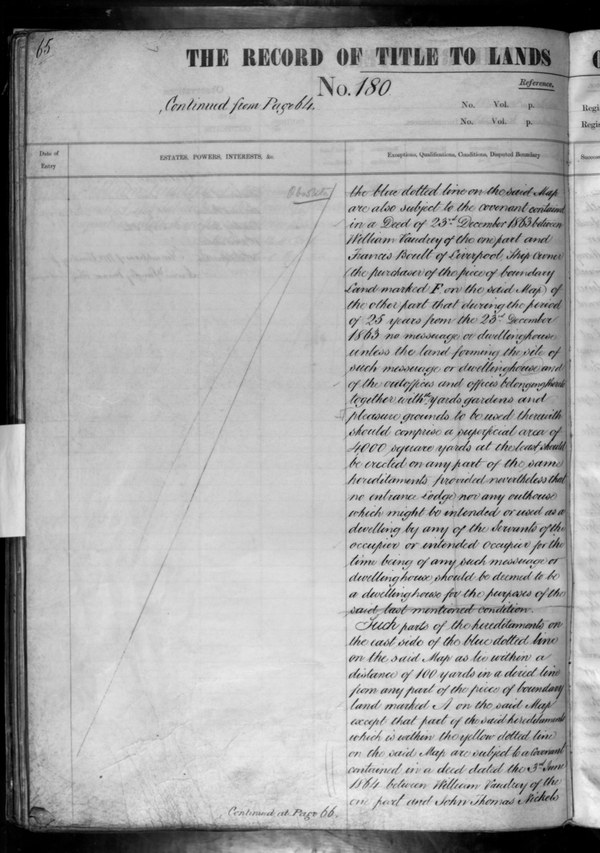 65
THE RECORD OF TITLE TO LANDS
No. 180
Reference.
Continued from Page 64.
No. Vol. p.
No. Vol. p.
Regi
Regis
Date of
Entry
ESTATES, POWERS, INTERESTS, &c.
Exceptions, Qualifications, Conditions, Disputed Boundary
the blue dotted line on the said Map
are also subject to the covenant contained
in a Deed of 23rd December 1863 between
William Vaudrey of the one part and
Francis Boult of Liverpool Ship Owner
(the purchaser of the piece of boundary
Land marked F on the said Map) of
the other part that during the period
of 25 years from the 23rd December
1863 no messuage or dwellinghouse
unless the land forming the site of
such messuage or dwellinghouse and
of the outoffices and offices belonging thereto
together with the yards gardens and
pleasure grounds to be used therewith
should comprise a superficial area of
4000 square yards at the least should
be erected on any part of the same
hereditaments provided nevertheless that
no entrance Lodge nor any outhouse
which might be intended or used as a
dwelling by any of the Servants of the
occupier or intended occupier for the
time being of any such messuage or
dwellinghouse should be deemed to be
a dwellinghouse for the purposes of the
said last mentioned condition.
Such parts of the hereditaments on
the east side of the blue dotted line
on the said Map as lie within a
distance of 100 yards in a direct line
from any part of the piece of boundary
land marked A on the said Map
except that part of the said hereditaments
which is within the yellow dotted line
on the said Map are subject to a Covenant
contained in a deed dated the 3rd June
1864 between William Vaudrey of the
one part and John Thomas Nickels
Continued at Page 66.